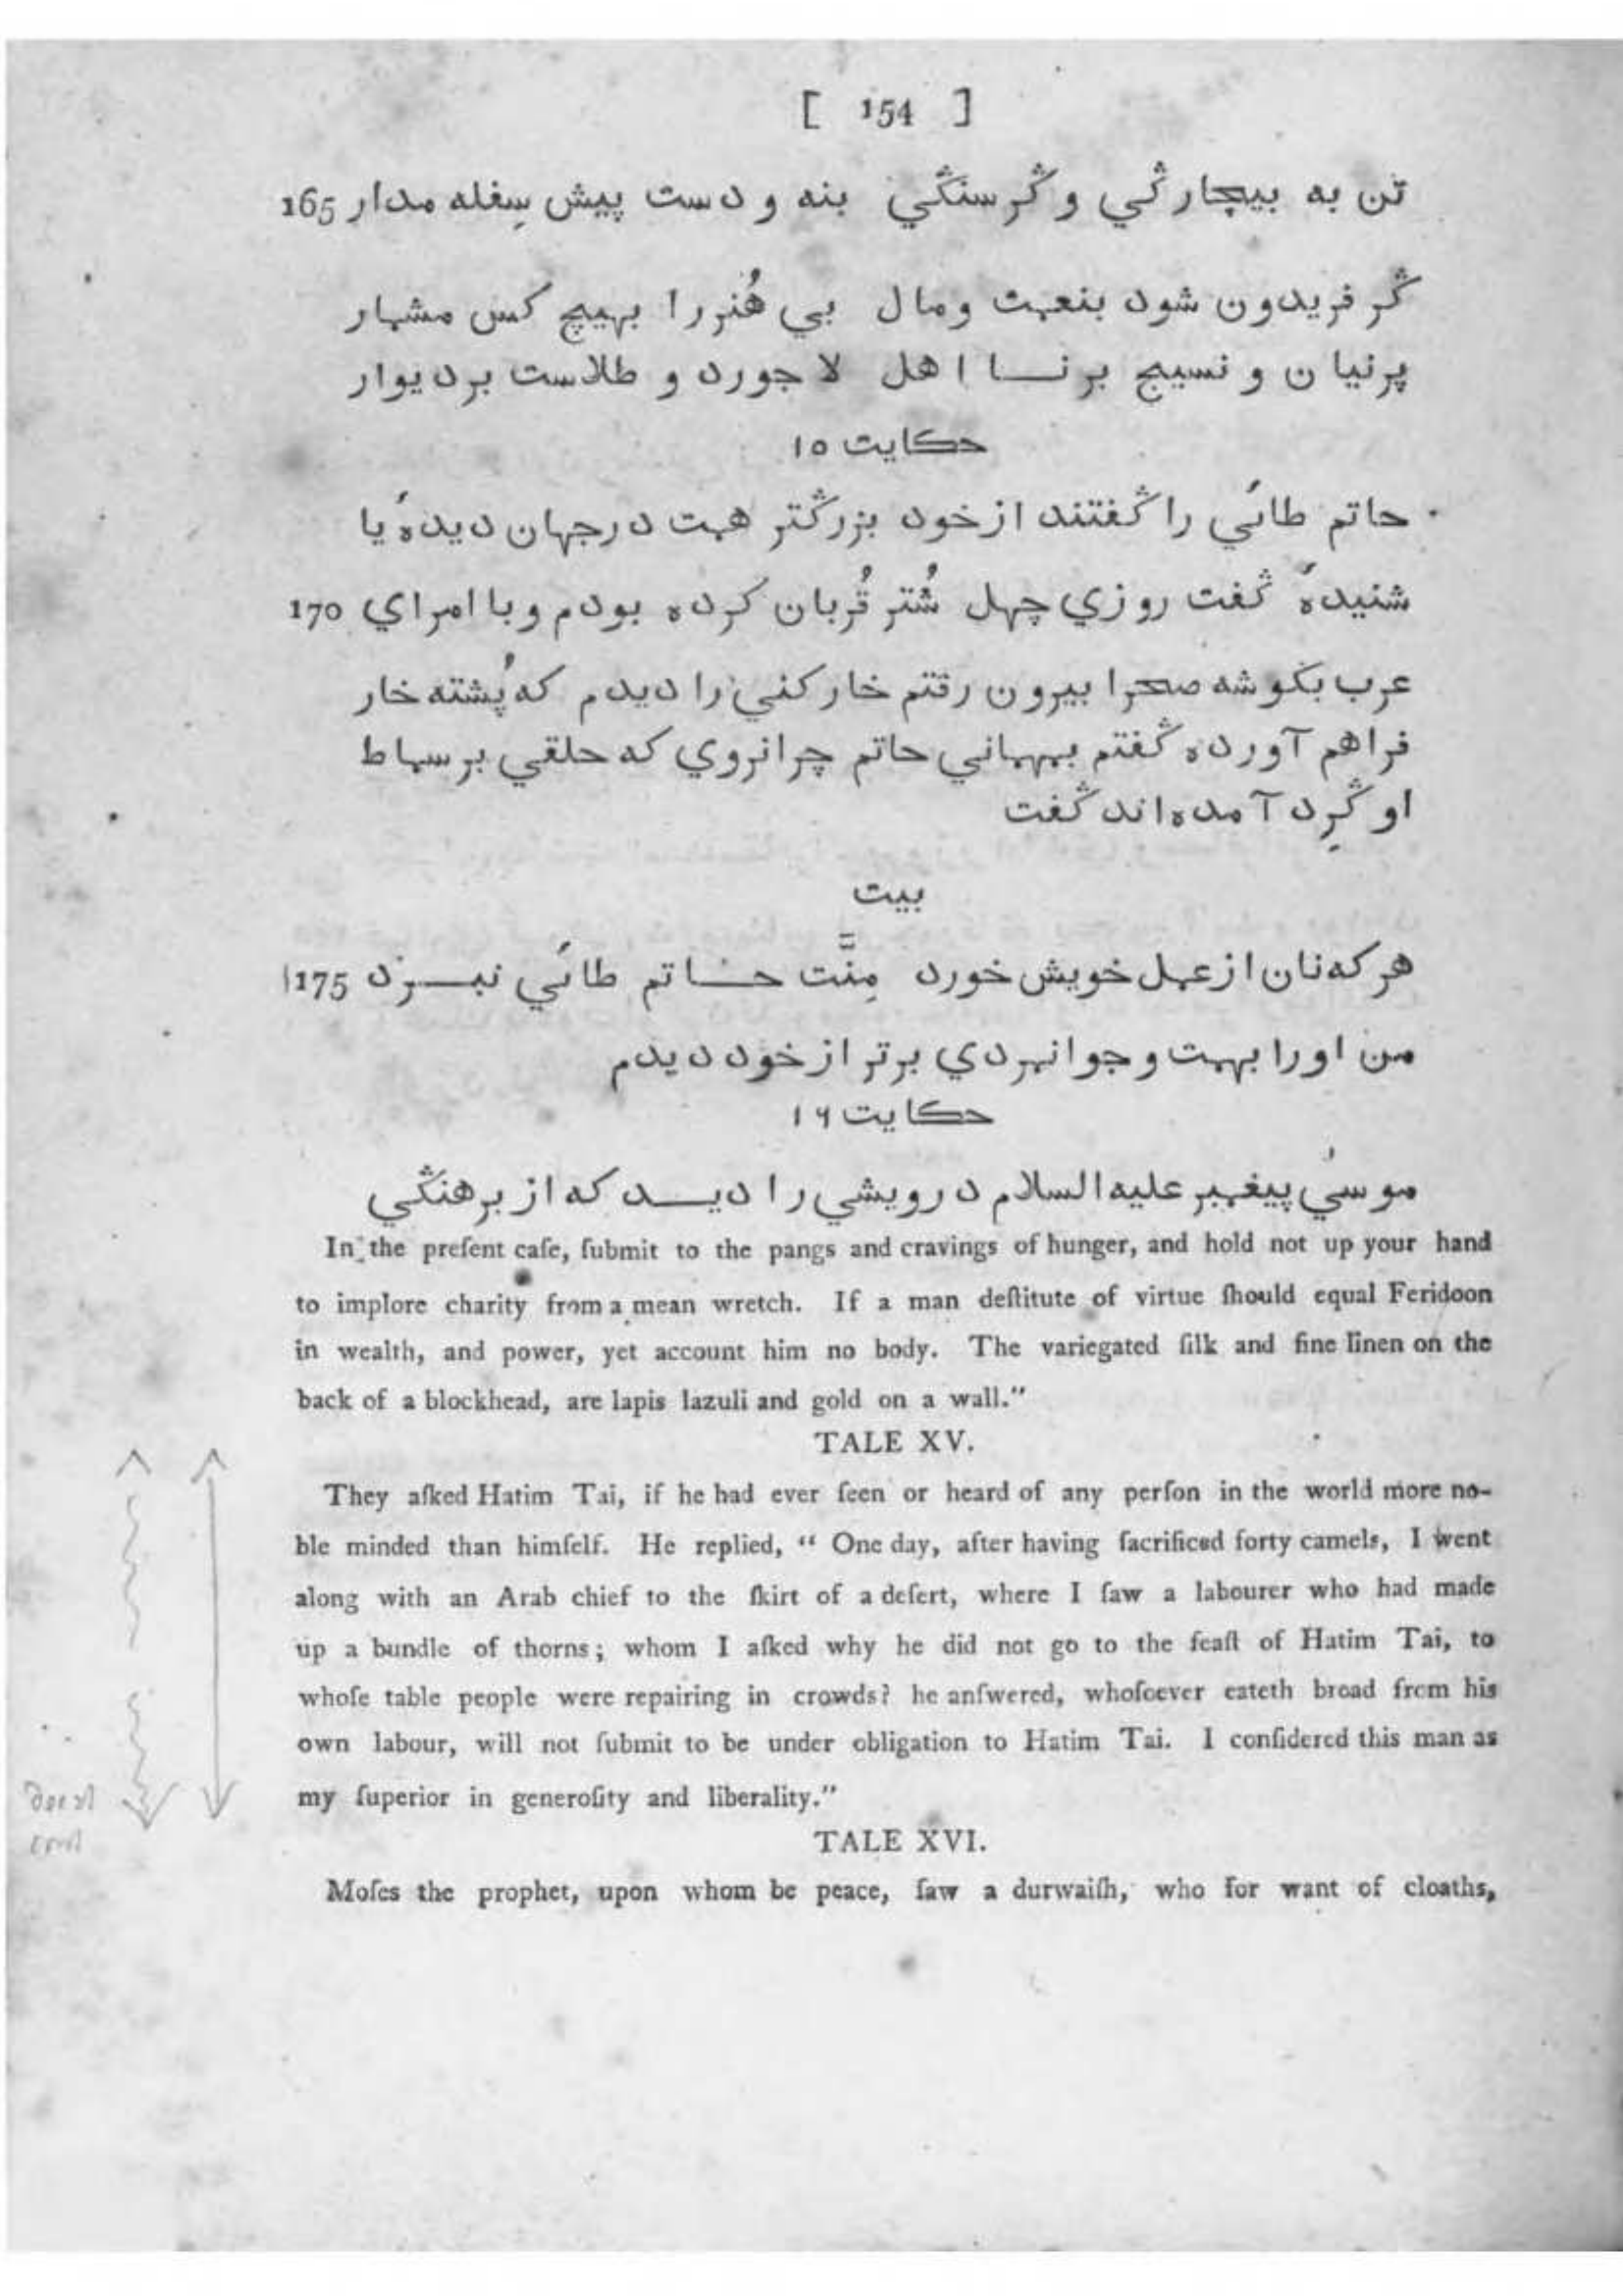 [ 154 ]
تن به بیچارگي و گرسنگي بنه و دست پیش سِفله مدار 165
گر فریدون شود بنعمت و مال بي هُنر را بهیچ کس مشمار
پرنیان و نسیج بر نا اهل لاجورد و طلاست بر دیوار
حکایت ۱۵
حاتم طائي را گفتند از خود بزرگتر همت در جهان دیدهٔ یا
شنیدهٔ گفت روزي چهل شُتر قُربان کرده بودم و با امراي 170
عرب بگوشه صحرا بیرون رفتم خارکني را دیدم که پُشته خار
فراهم آورده گفتم بمهماني حاتم چرا نروي که خلقي بر سماط
او گِرد آمده اند گفت
بیت
هر که نان از عمل خویش خورد مِنَّت حاتم طائي نبرد 175
من او را بهمت و جوانمردي برتر از خود دیدم
حکایت ۱۶
موسيٰ پیغمبر علیه السلام درویشي را دید که از برهنگي
In the preſent caſe, ſubmit to the pangs and cravings of hunger, and hold not up your hand
to implore charity from a mean wretch. If a man deſtitute of virtue ſhould equal Feridoon
in wealth, and power, yet account him no body. The variegated ſilk and fine linen on the
back of a blockhead, are lapis lazuli and gold on a wall.”
TALE XV.
They aſked Hatim Tai, if he had ever ſeen or heard of any perſon in the world more no-
ble minded than himſelf. He replied, “ One day, after having ſacrificed forty camels, I went
along with an Arab chief to the ſkirt of a deſert, where I ſaw a labourer who had made
up a bundle of thorns; whom I aſked why he did not go to the feaſt of Hatim Tai, to
whoſe table people were repairing in crowds? he anſwered, whoſoever eateth bread from his
own labour, will not ſubmit to be under obligation to Hatim Tai. I conſidered this man as
my ſuperior in generoſity and liberality.”
TALE XVI.
Moſes the prophet, upon whom be peace, ſaw a durwaiſh, who for want of cloaths,